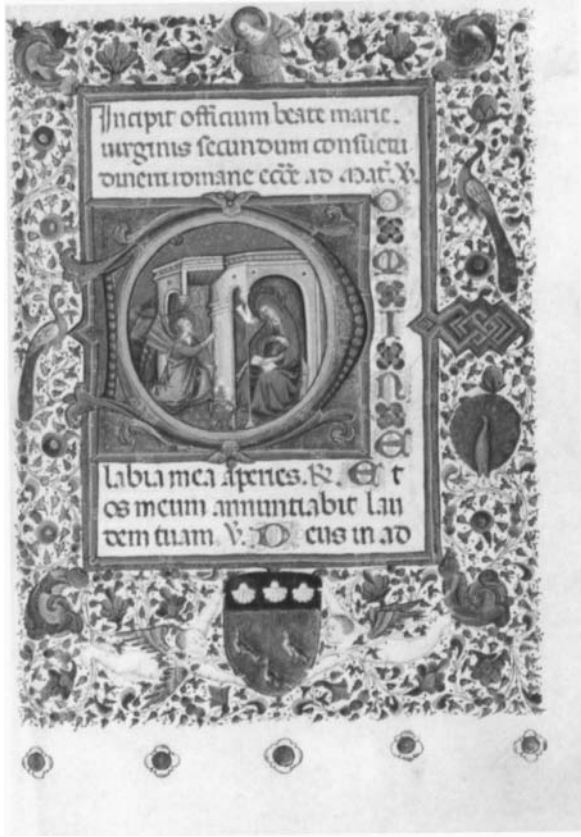 Incipit officium beate marie.
uirginis secundum consuetu
dinem romane ecc̄e ad Mat̄. V.
DOMINE
labia mea aperies. R. Et
os meum annuntiabit lau
dem tuam. V. Deus in ad